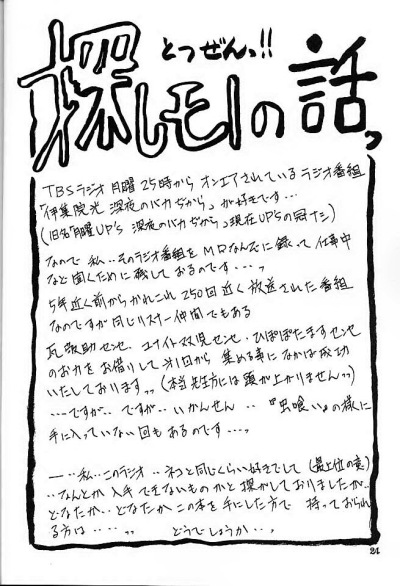 とつぜんっ!!
探しモノの話っ
TBSラジオ月曜25時からオンエアされているラジオ番組
「伊集院光 深夜のバカぢから」が好きです…
(旧名「月曜UP's 深夜のバカぢから」現在UP'Sの冠ナシ)
なので 私‥そのラジオ番組をMDなんぞに録って仕事中
など聞くために残しておるのです…、
5年近く前からかれこれ250回近く放送された番組
なのですが同じリスナー仲間でもある
瓦敬助センセ、ユナイト双児センセ・ひぽぽたますセンセ
のお力をお借りして第1回から集める事になかば成功
いたしております、、(本当先生方には頭が上がりません、、)
…ですが‥ですが‥いかんせん‥『虫喰い』の様に
手に入っていない回もあるのです…、
―‥私‥このラジオ‥ネコと同じくらい好きでして(最上位の意)
‥なんとか入手できないものかと探がしておりましたが‥
どなたか‥どなたかこの本を手にした方で 持っておられ
る方は…‥、、 どうでしょうか…、
21